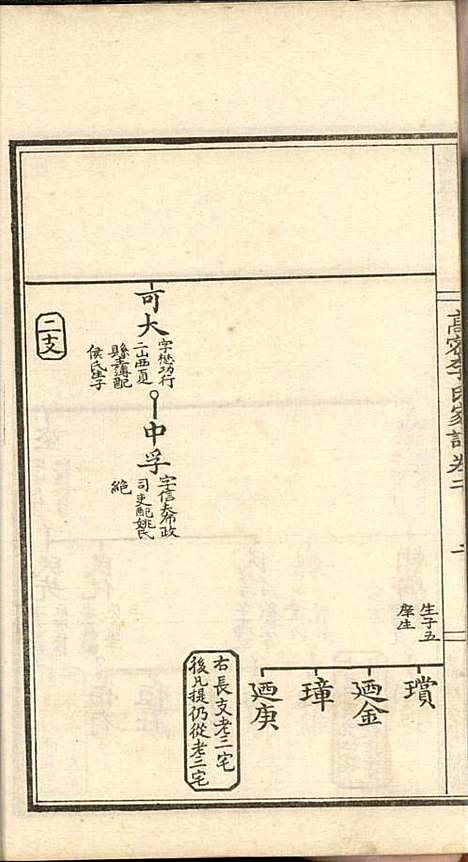 高密李氏家譜卷二
生子五
庠生
瓊
迺金
璋
迺庚
右長支老三宅
後凡提仍從老三宅
可大
字懋功行
二山西夏
縣主簿配
侯氏生子
中孚
字信夫布政
司吏配姚氏
絶
二支